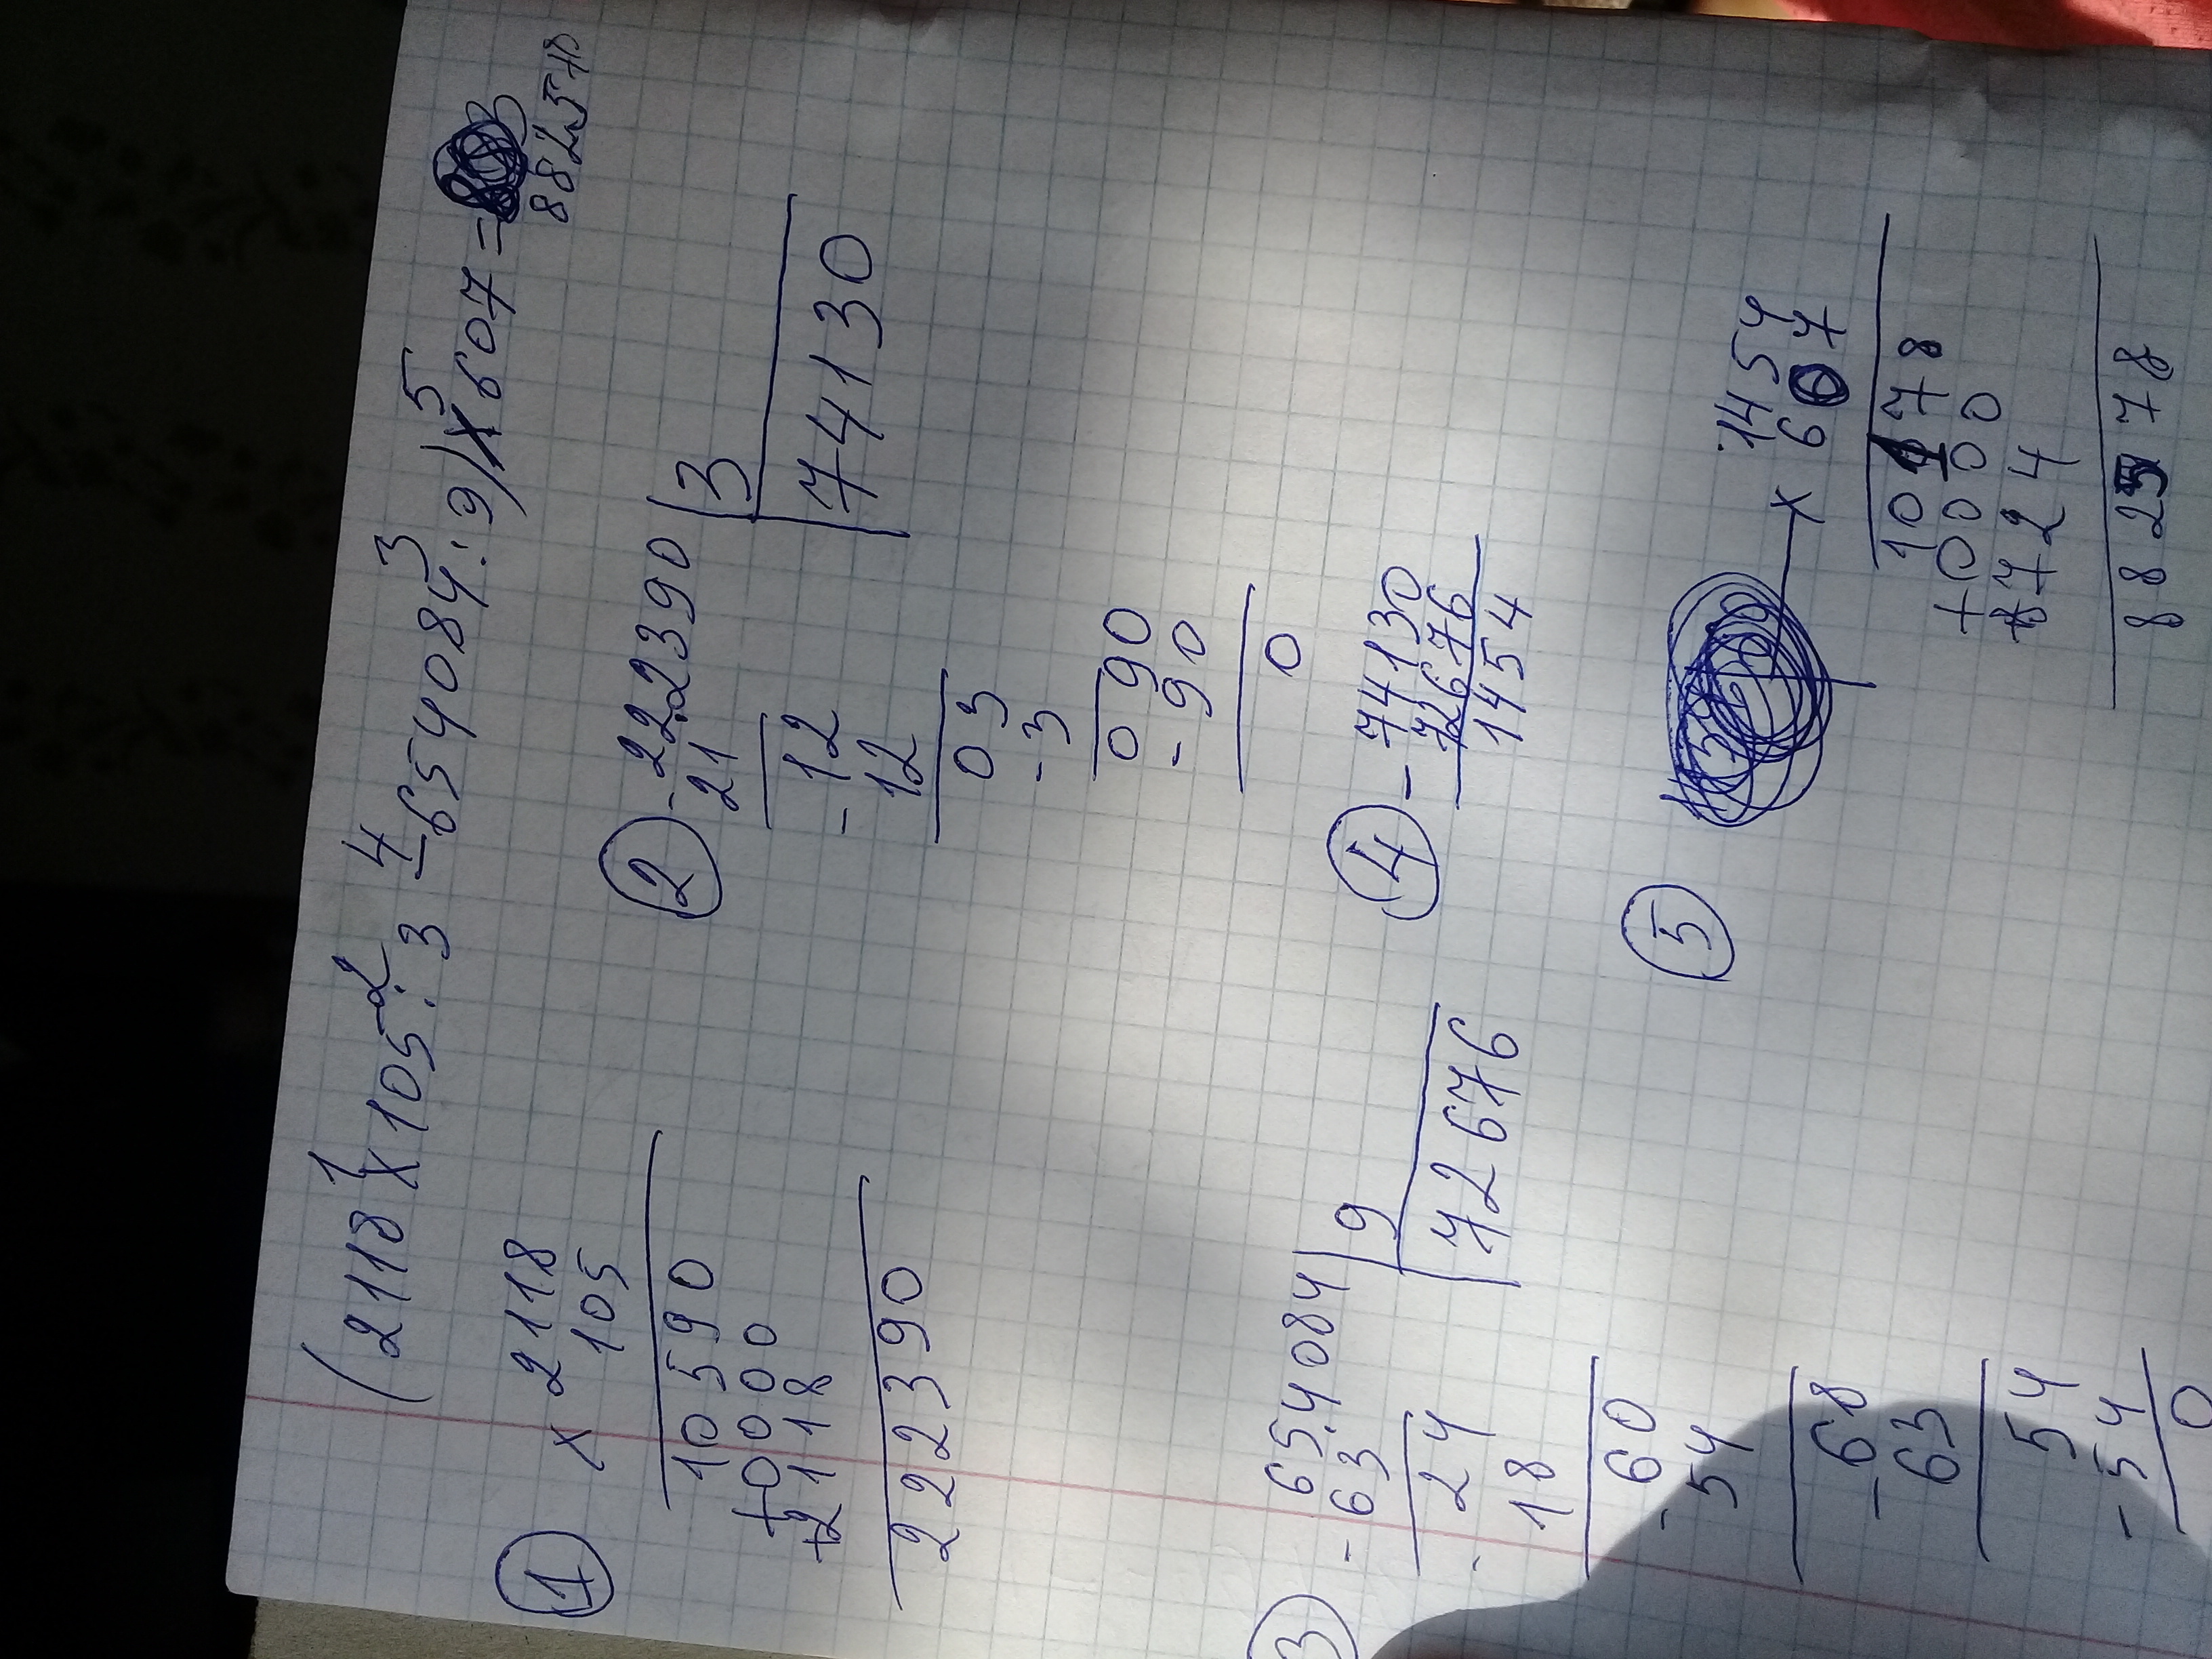 1 2 4 3 5
(2118 x 105 : 3 - 654084 : 9) x 607 =
882578
1
x 2118
105
10590
+0000
+2118
222390
2
-222390 | 3
21
74130
-12
12
03
-3
090
-90
0
3
-654084 | 9
63
72676
-24
18
60
-54
-68
63
54
-54
0
4
-74130
72676
1454
5
x 1454
607
10178
+0000
+8724
882578